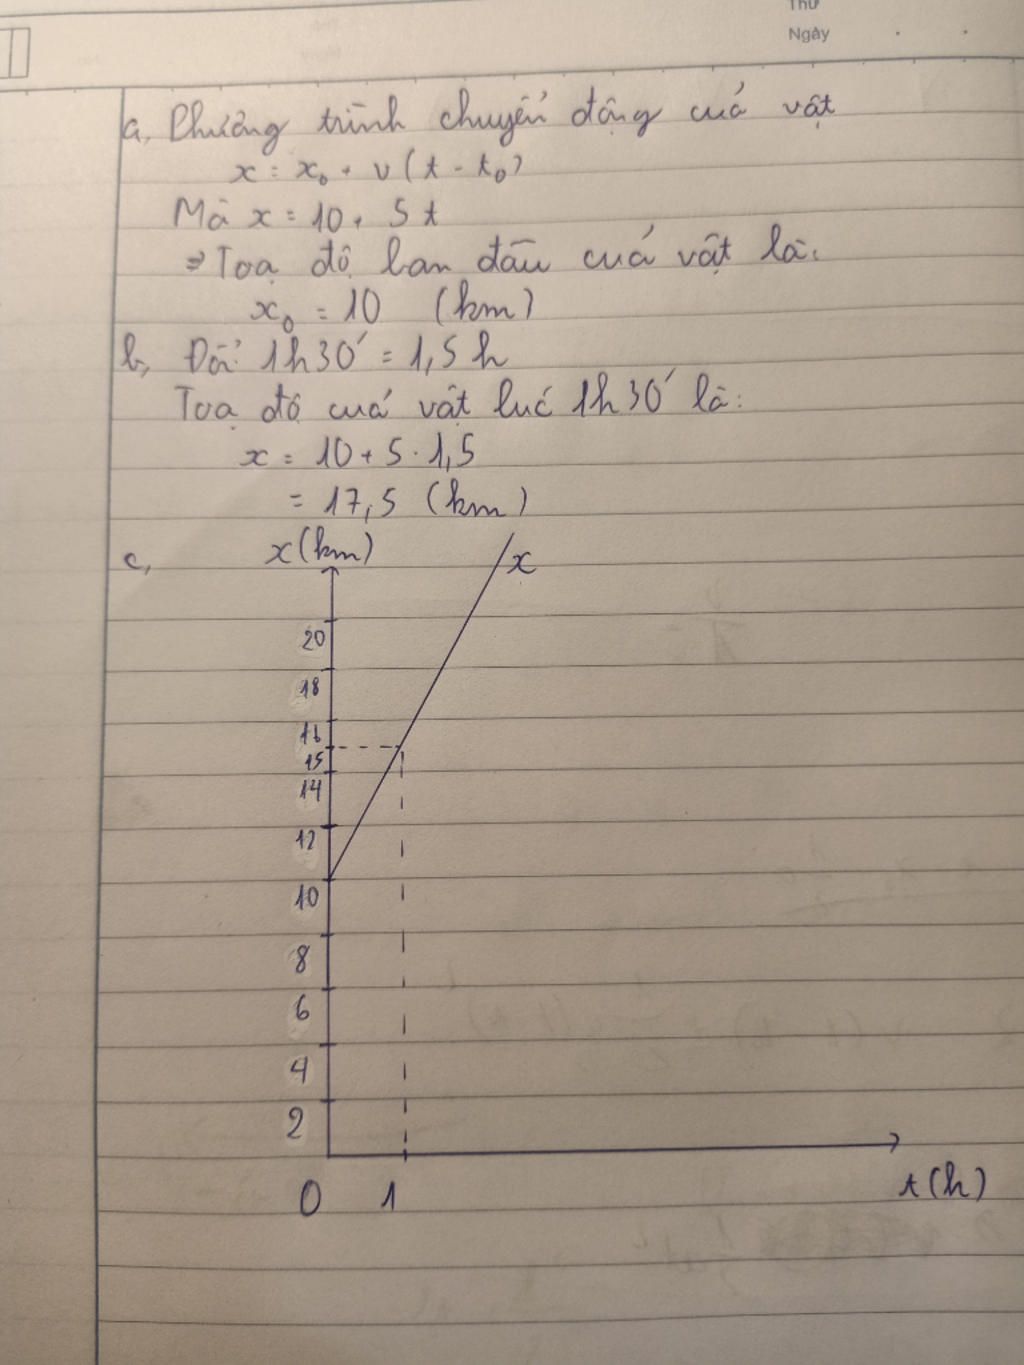 Thứ
Ngày
a, Phương trình chuyển động của vật
x = x₀ + v(t - t₀)
Mà x = 10 + 5t
⇒ Toạ độ ban đầu của vật là:
x₀ = 10 (km)
b, Đổi: 1h30' = 1,5h
Toạ độ của vật lúc 1h30' là:
x = 10 + 5 · 1,5
= 17,5 (km)
c, x(km) x
20
18
16
15
14
12
10
8
6
4
2
0 1 t(h)